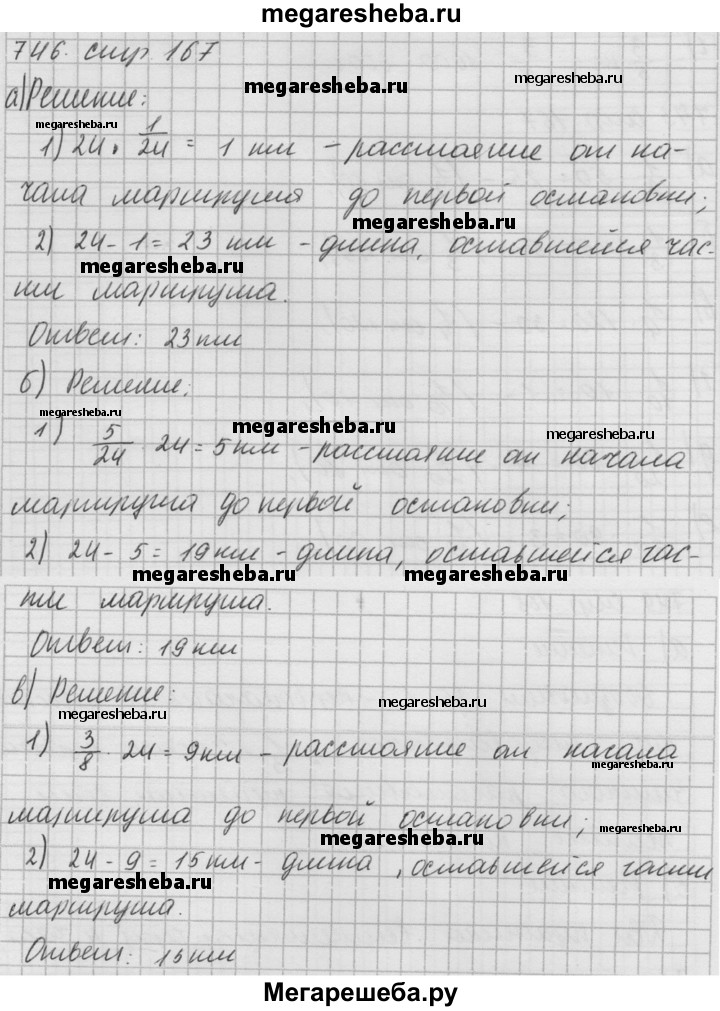 megaresheba.ru
746. стр 167
megaresheba.ru
megaresheba.ru
а) Решение:
megaresheba.ru
1) 24 · 1/24 = 1 км - расстояние от на-
чала маршрута до первой остановки;
megaresheba.ru
2) 24 - 1 = 23 км - длина, оставшейся час-
megaresheba.ru
ти маршрута.
Ответ: 23 км
б) Решение:
megaresheba.ru
megaresheba.ru
megaresheba.ru
1) 5/24 · 24 = 5 км - расстояние от начала
маршрута до первой остановки;
2) 24 - 5 = 19 км - длина, оставшейся час-
megaresheba.ru
megaresheba.ru
ти маршрута.
Ответ: 19 км
в) Решение:
megaresheba.ru
megaresheba.ru
1) 3/8 · 24 = 9 км - расстояние от начала
megaresheba.ru
маршрута до первой остановки;
megaresheba.ru
megaresheba.ru
2) 24 - 9 = 15 км - длина, оставшейся части
megaresheba.ru
megaresheba.ru
маршрута.
Ответ: 15 км
Мегарешеба.ру